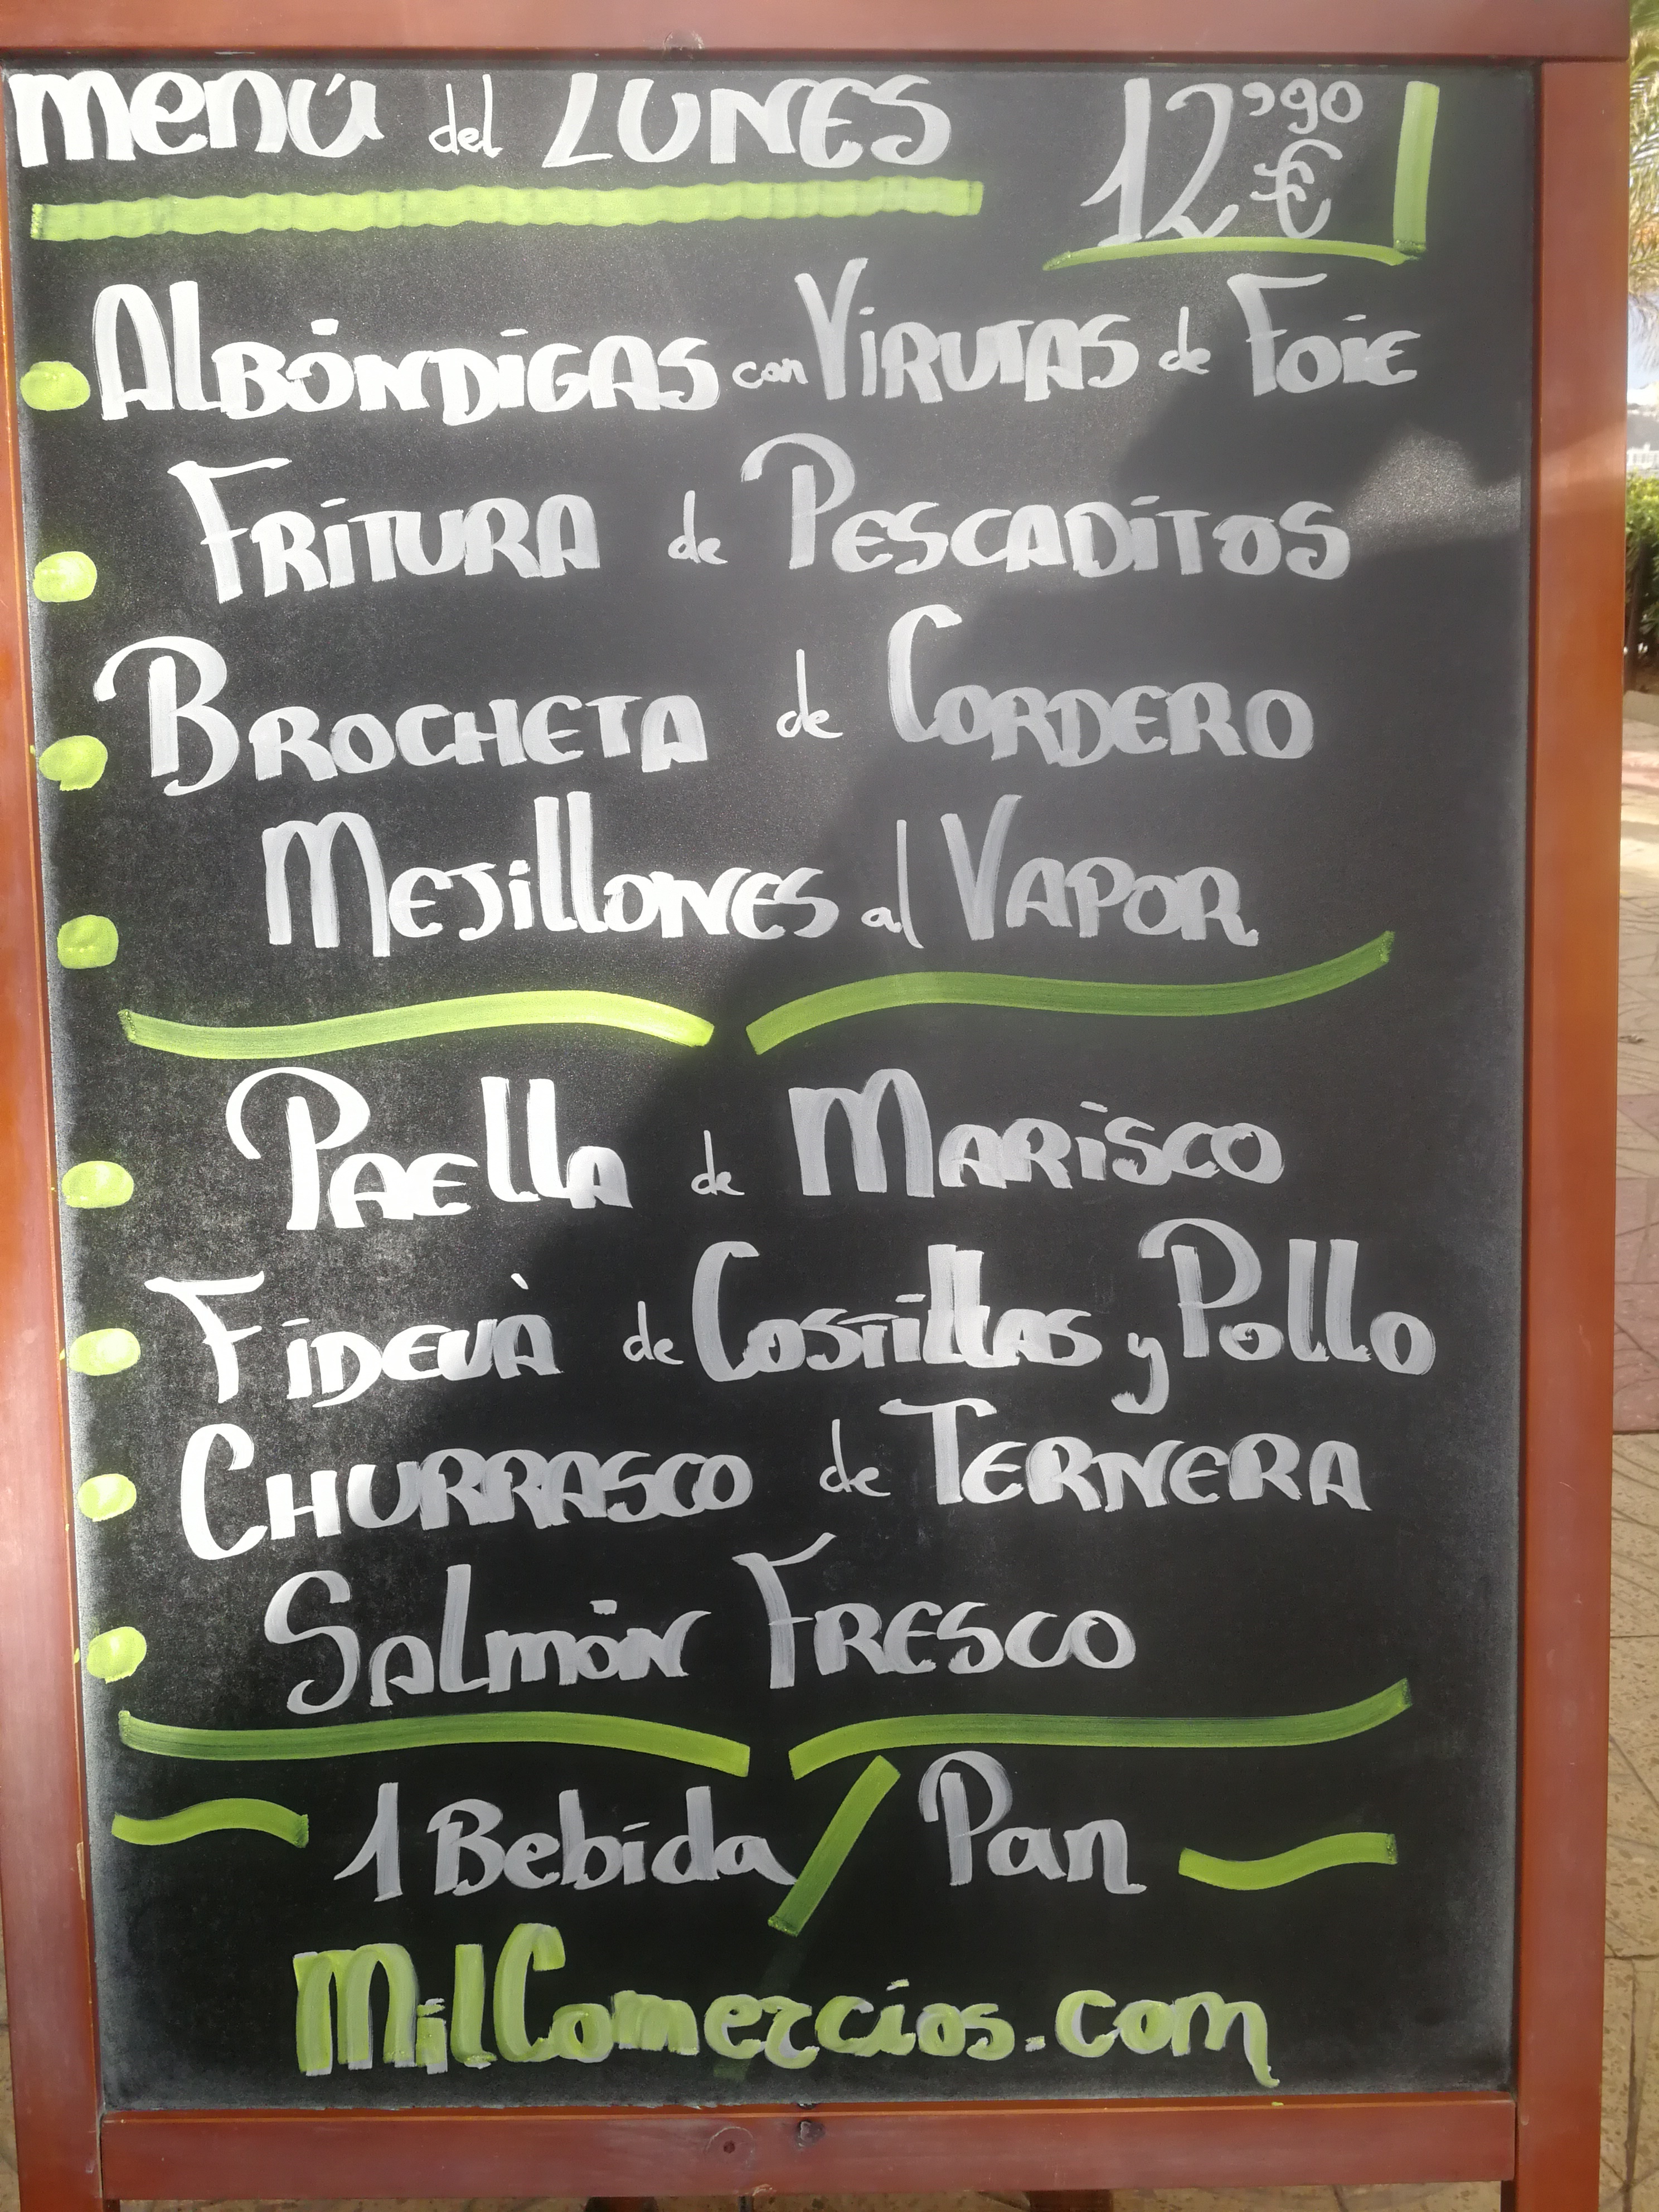 Menú del LUNES 12,90 €
Albóndigas con Virutas de Foie
Fritura de Pescaditos
Brocheta de Cordero
Mejillones al Vapor
Paella de Marisco
Fideuà de Costillas y Pollo
Churrasco de Ternera
Salmón Fresco
1 Bebida / Pan
MilComercios.com